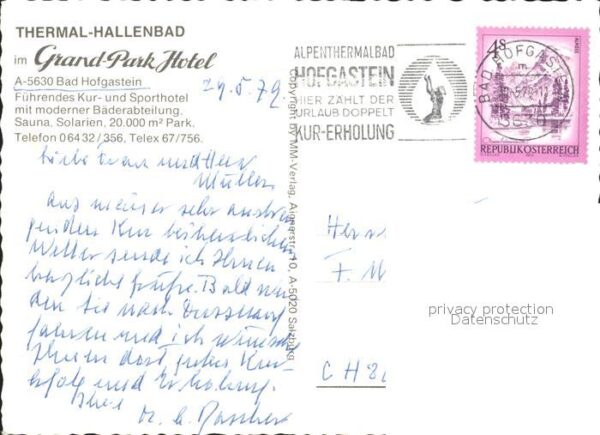 THERMAL-HALLENBAD
im Grand-Park Hotel
A-5630 Bad Hofgastein
Führendes Kur- und Sporthotel
mit moderner Bäderabteilung.
Sauna. Solarien, 20.000 m² Park.
Telefon 06432/356. Telex 67/756.
29.5.79.
Liebe Frau und Herr
Müller,
aus meiner sehr anstren
genden Kur bei herrlichem
Wetter sende ich Ihnen
herzliche Grüße. Bald wer
den Sie nach
fahren und ich wünsche
Ihnen dort guten Kur-
erfolg und Erholung.
Ihre
Copyright by MM-Verlag, Aignerstr. 10, A-5020 Salzburg
ALPENTHERMALBAD
HOFGASTEIN
HIER ZÄHLT DER
URLAUB DOPPELT
KUR-ERHOLUNG
BAD HOFGASTEIN
4S
REPUBLIK ÖSTERREICH
Herrn
F. M
CH 8
privacy protection
Datenschutz